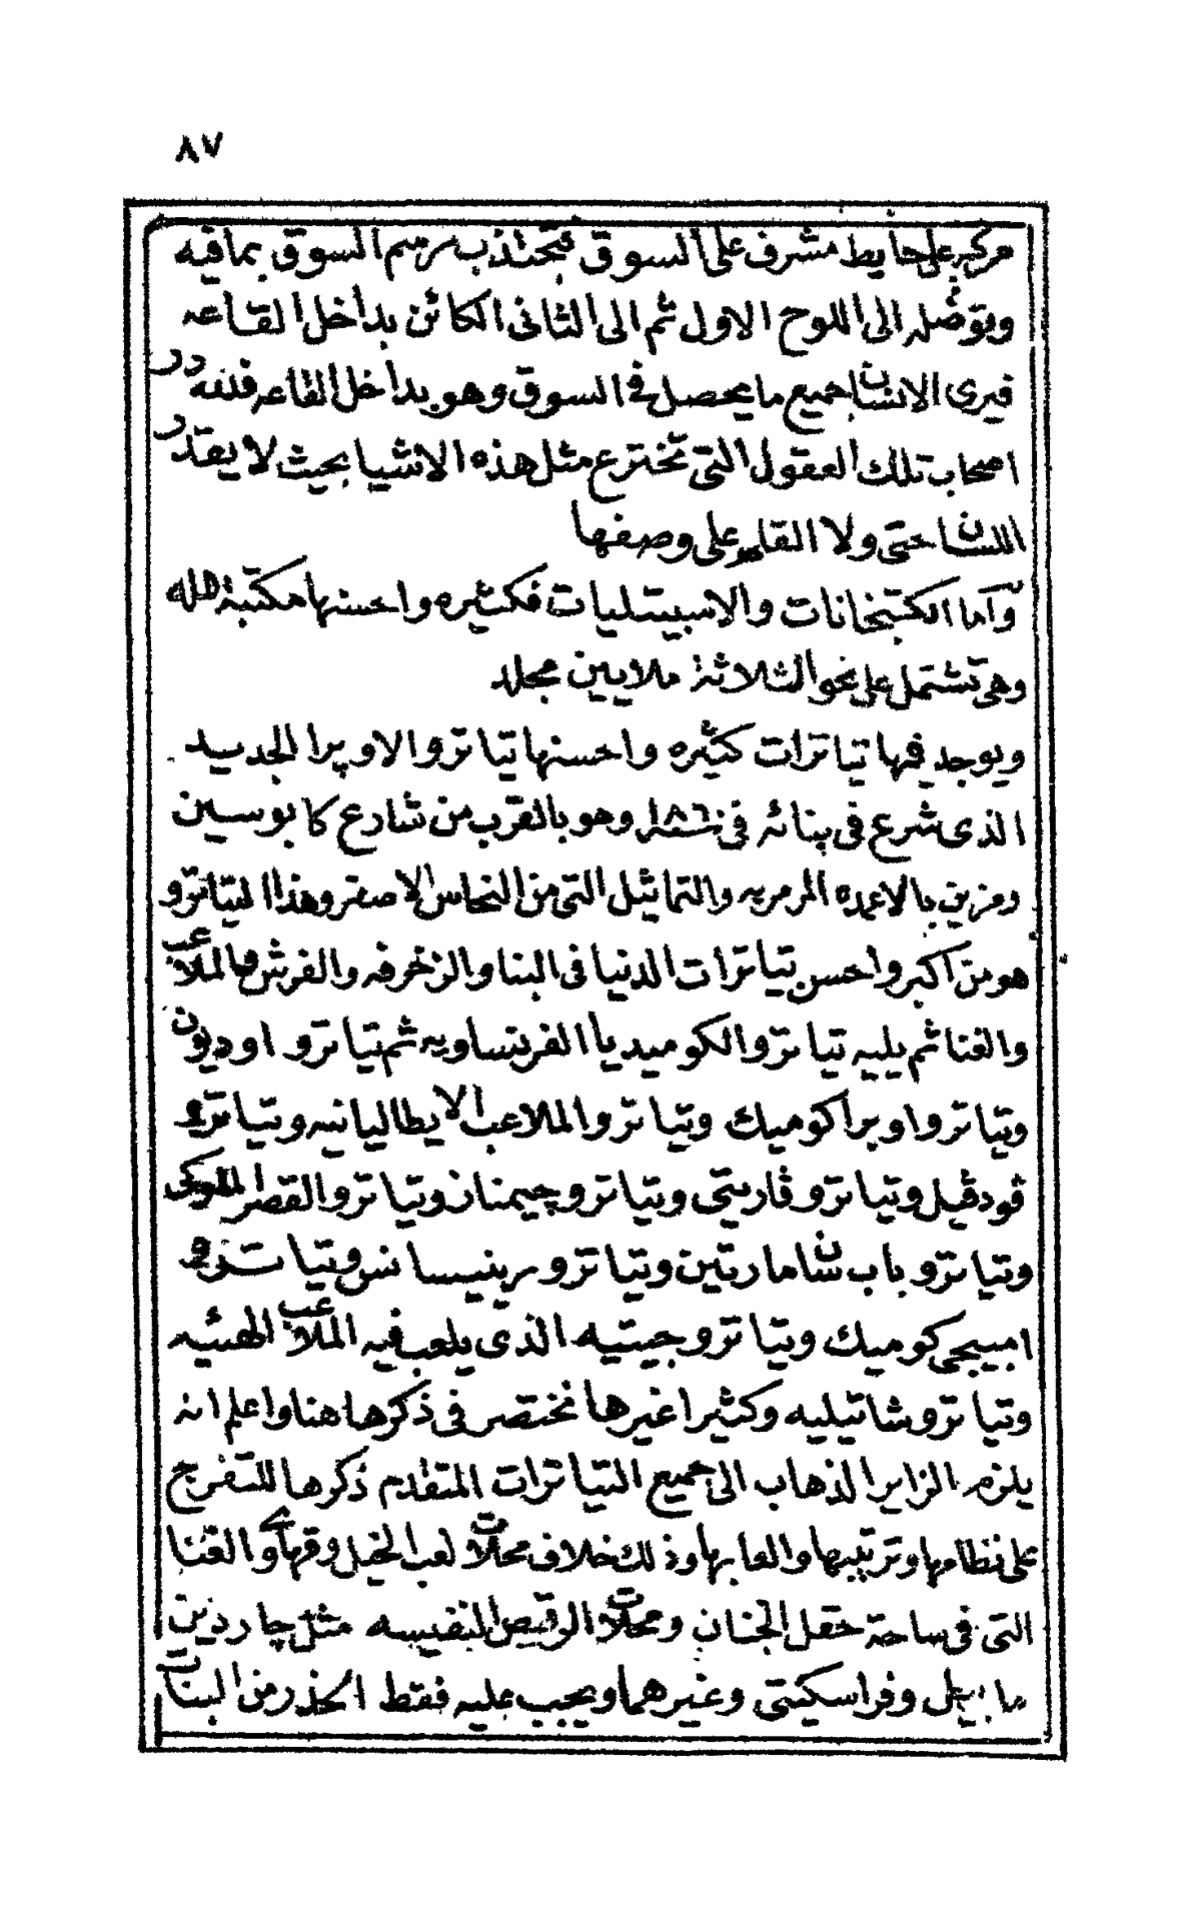 ٨٧
مركبه على حايط مشرف على السوق فيجتذب رسم السوق بما فيه
ويوصله الى اللوح الاول ثم الى الثانى الكائن بداخل القاعه
فيرى الانسان جميع ما يحصل فى السوق وهو بداخل القاعه فلله در
اصحاب تلك العقول التى تخترع مثل هذه الاشيا بحيث لا يقدر
اللسان حتى ولا القلم على وصفها
واما الكتبخانات والاسبيتليات فكثيره واحسنها مكتبة
وهى تشتمل على نحو الثلاثة ملايين مجلد
ويوجد فيها تياترات كثيره واحسنها تياترو الاوپرا الجديد
الذى شرع فى بنائه فى سنة ١٨٦١ وهو بالقرب من شارع كابوسين
ومزين بالاعمده المرمريه والتماثيل التى من النحاس الاصفر وهذا التياترو
هو من اكبر واحسن تياترات الدنيا فى البنا والزخرفه والفرش والملاعب
والغنا ثم يليه تياترو الكوميديا الفرنساويه ثم تياترو اوديون
وتياترو اوبرا كوميك وتياترو الملاعب الايطاليانيه وتياترو
ڤودڤيل وتياترو ڤاريتى وتياترو چيمناز وتياترو القصر الملوكى
وتياترو باب سان مارتين وتياترو رينيسانس وتياترو
امبيجى كوميك وتياترو جيتيه الذى يلعب فيه الملاعب الهئيه
وتياترو شاتيليه وكثيرا غيرها نختصر فى ذكرها هنا واعلم انه
يلزم الزاير الذهاب الى جميع التياترات المتقدم ذكرها للتفرج
على نظامها وترتيبها والعابها وذلك خلاف محلات لعب الخيل وقهاوى الغنا
التى فى ساحة حقل الجنان ومحلات الرقيص النفيسه مثل چاردين
مابيل وفراسكيتى وغيرهما ويجب عليه فقط الحذر من البنات